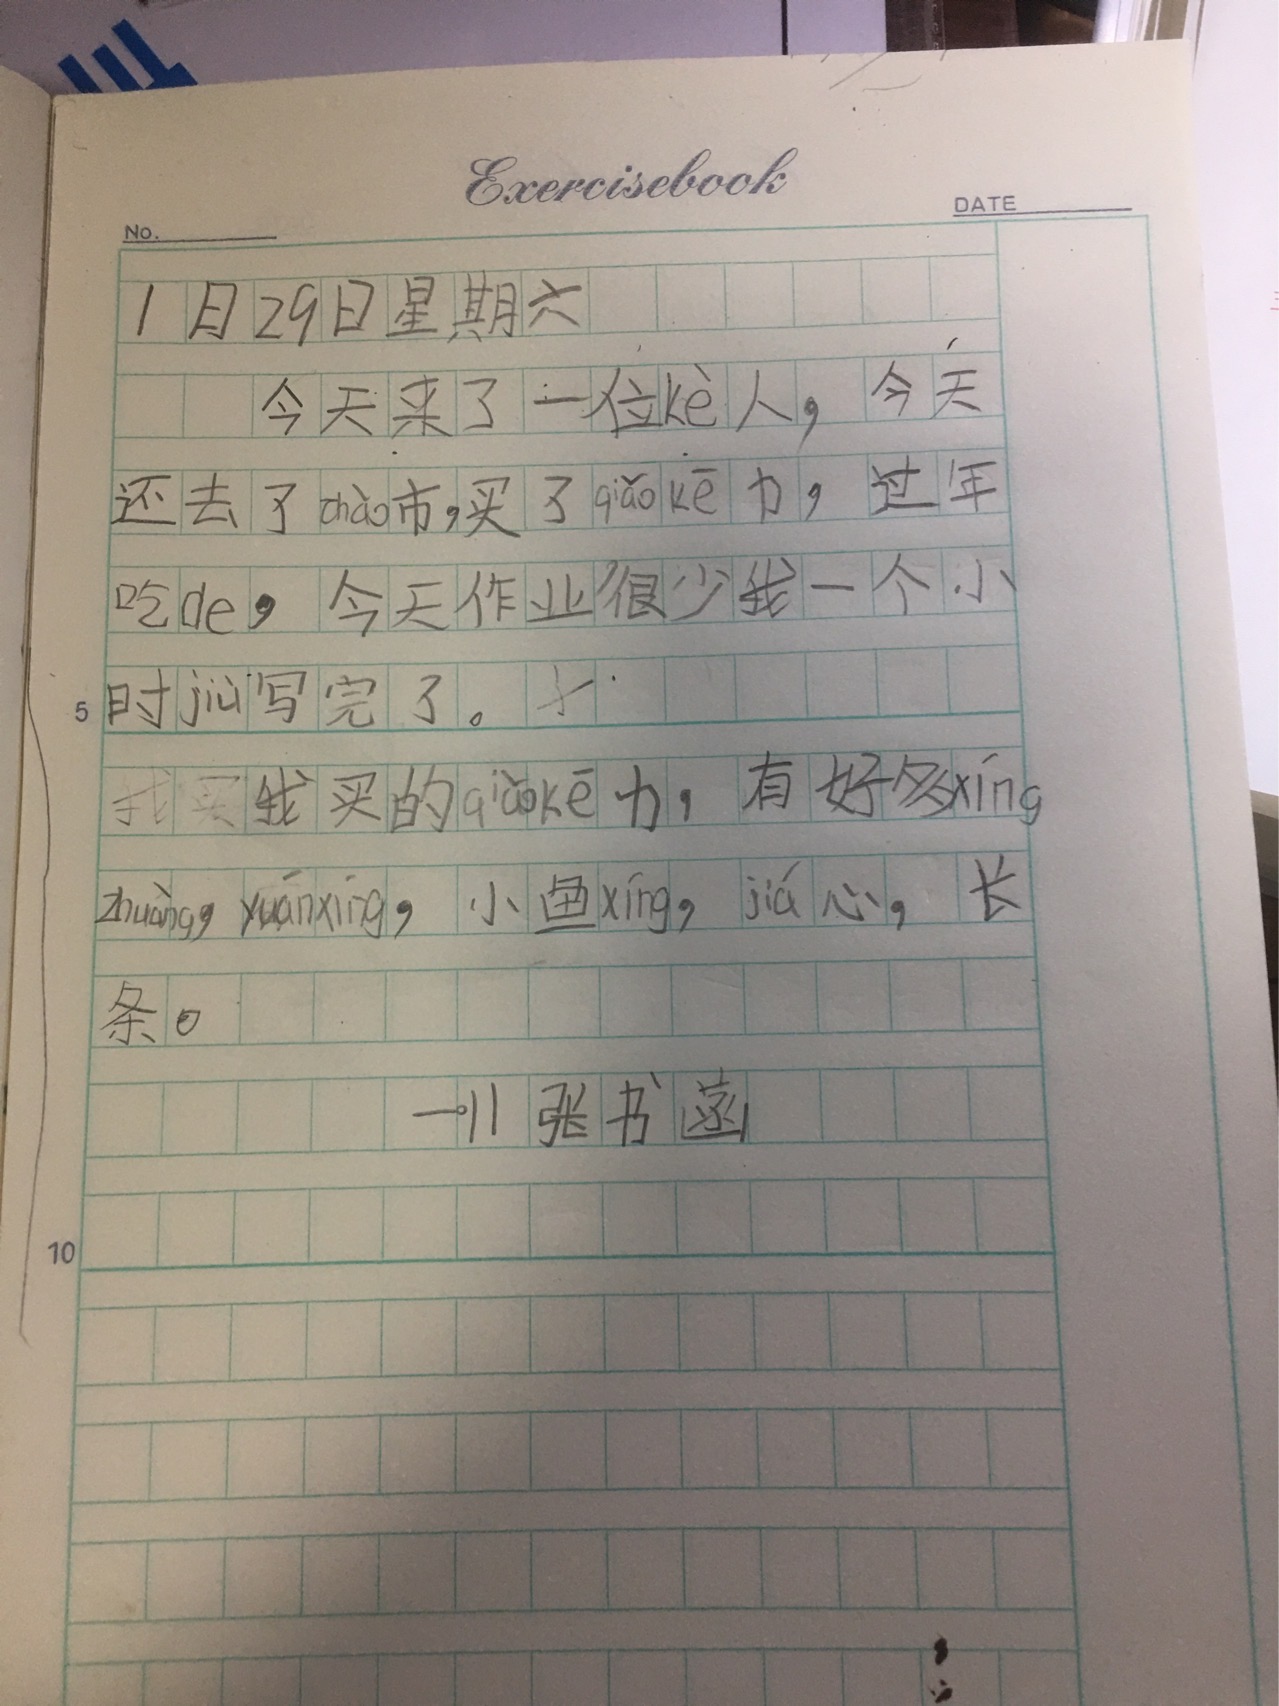 Exercisebook
No.
DATE
1月29日星期六
今天来了一位kè人，今天
还去了chào市，买了qiǎokē力，过年
吃de，今天作业很少我一个小
5
时jiù写完了。
我买我买的qiǎokē力，有好多xíng
zhuàng，yuánxíng，小鱼xíng，jiá心，长
条。
张书菡
10